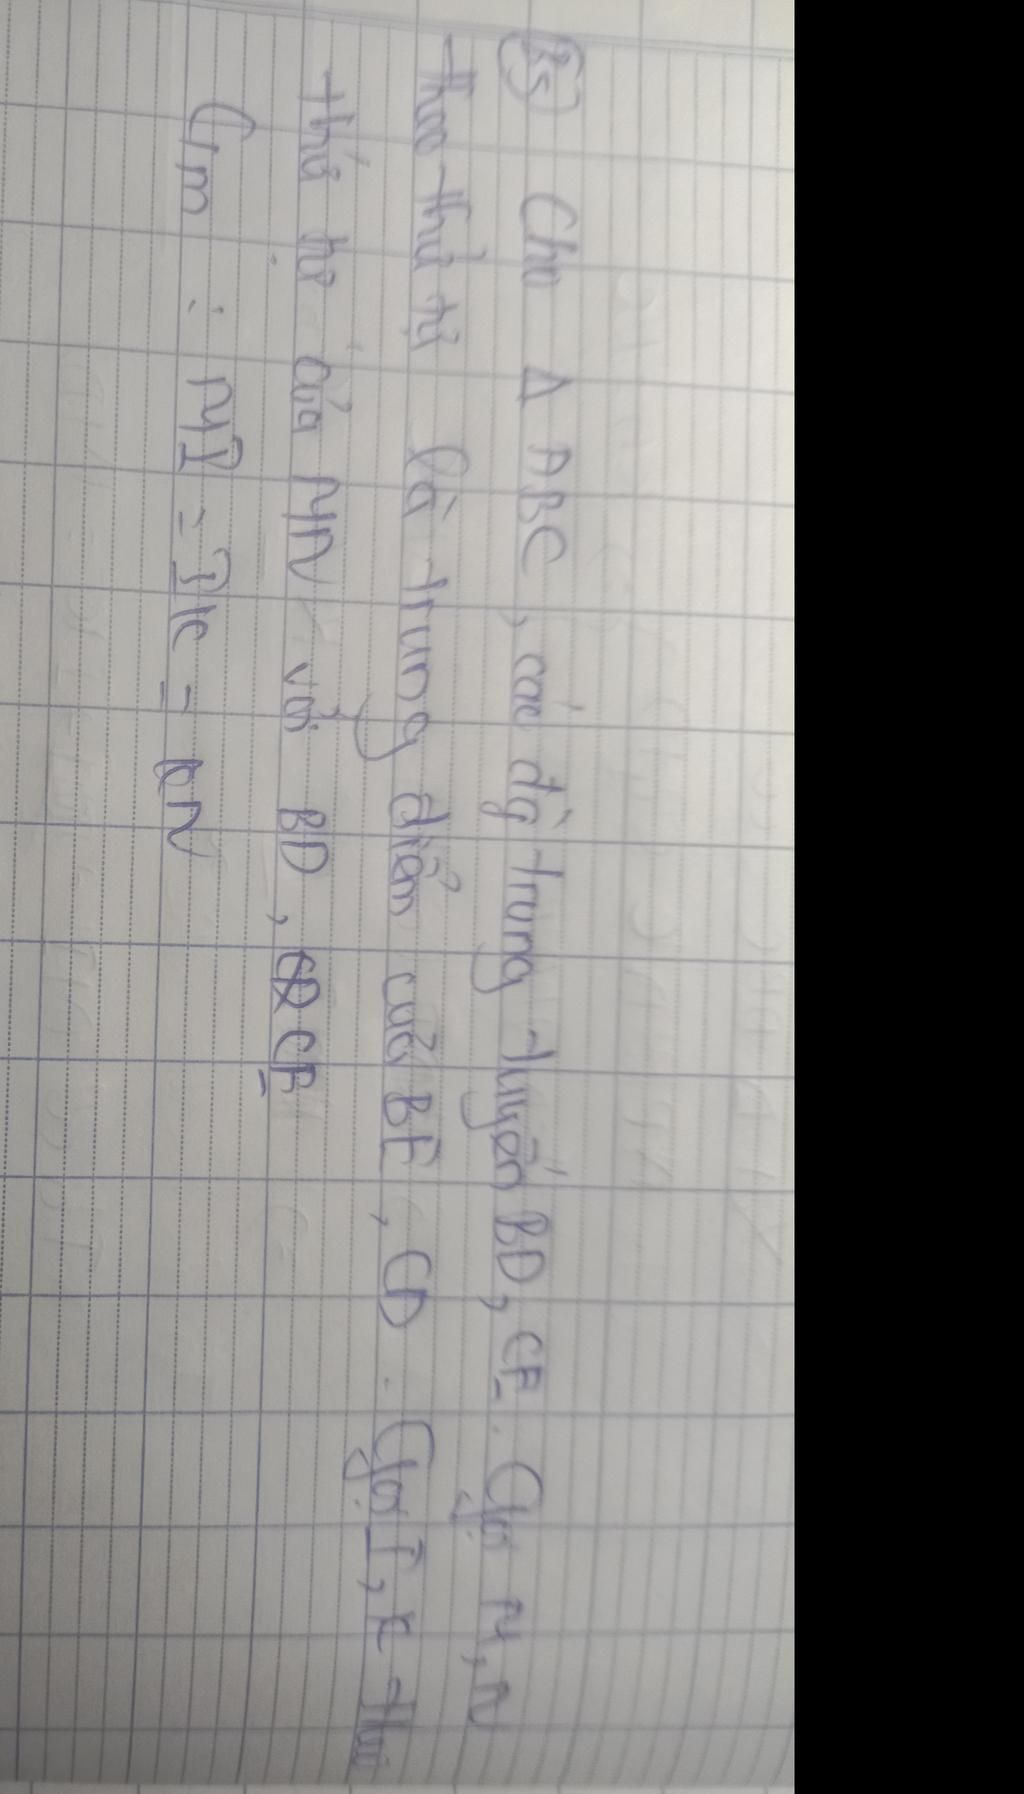 B5 Cho Δ ABC, các đg trung tuyến BD, CE. Gọi M, N
theo thứ tự là trung điểm của BE, CD. Gọi I, K theo
thứ tự của MN với BD, CE
Cm : MI = IK = KN